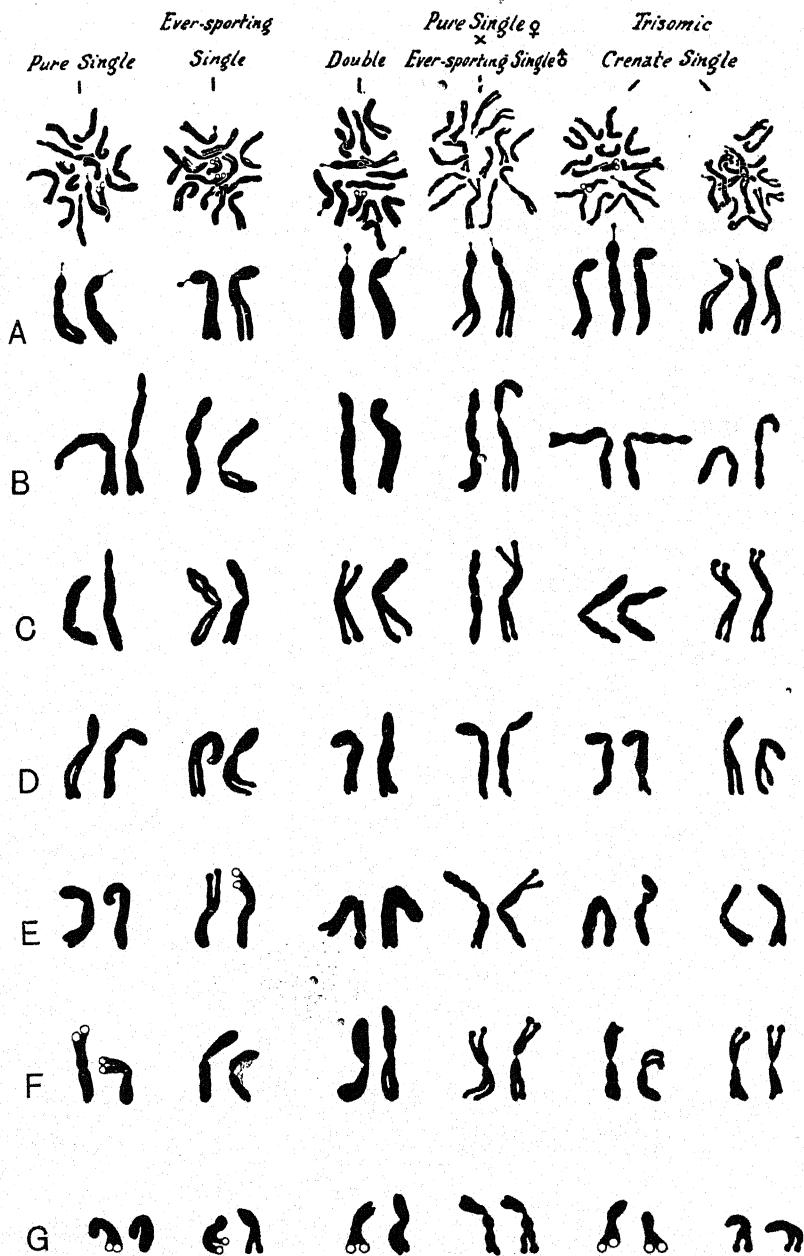 Pure Single
Ever-sporting
Single
Double
Pure Single ♀
×
Ever-sporting Single ♂
Trisomic
Crenate Single
A
B
C
D
E
F
G